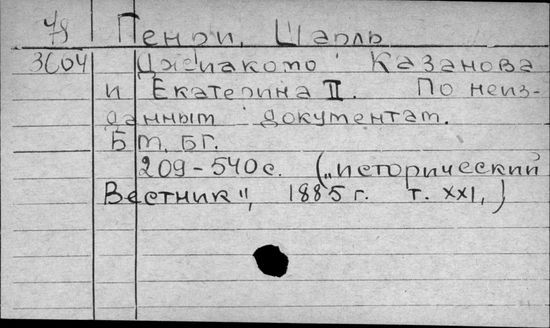 78 Пенри, Шарль
3604 Джиакомо Казанова
и Екатерина II. По неиз-
данным документам.
Б м, б г.
209-540 с. („исторический
Вестник", 1885 г. т. XXI,)